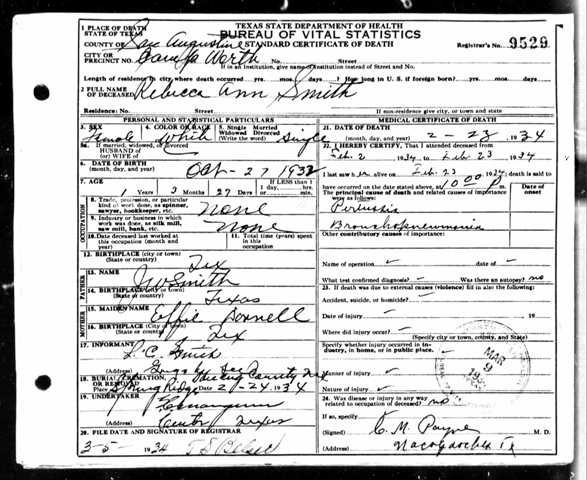 TEXAS STATE DEPARTMENT OF HEALTH
BUREAU OF VITAL STATISTICS
STANDARD CERTIFICATE OF DEATH
1 PLACE OF DEATH
STATE OF TEXAS
COUNTY OF San Augustine
CITY OR
PRECINCT NO. No. Street
Registrar's No. 9529
If in an institution, give name of institution instead of Street and No.
Length of residence in city where death occurred yrs. mos. days. How long in U. S. if foreign born? yrs. mos. days.
2 FULL NAME
OF DECEASED Rebecca Ann Smith
Residence: No. Street
If non-residence give city, or town and state
PERSONAL AND STATISTICAL PARTICULARS
3. SEX 4. COLOR OR RACE 5. Single Married Widowed Divorced (Write the word)
Female White Single
5a. If married, widowed, or divorced
HUSBAND of
(or) WIFE of
6. DATE OF BIRTH
(month, day, and year) Oct - 27 1932
7. AGE If LESS than 1 day, hrs. or min.
1 Years 3 Months 27 Days
OCCUPATION
8. Trade, profession, or particular
kind of work done, as spinner,
sawyer, bookkeeper, etc. None
9. Industry or business in which
work was done, as silk mill,
saw mill, bank, etc. None
10. Date deceased last worked at
this occupation (month and year)
11. Total time (years) spent in this occupation
12. BIRTHPLACE (city or town)
(State or country) Tex
FATHER
13. NAME J W Smith
14. BIRTHPLACE (city or town)
(State or country) Texas
MOTHER
15. MAIDEN NAME Effie
16. BIRTHPLACE (City or town)
(State or country) Tex
17. INFORMANT Smith
(Address)
18. BURIAL, CREMATION,
OR REMOVAL
Place Date 2-24-1934
19. UNDERTAKER
(Address) Texas
20. FILE DATE AND SIGNATURE OF REGISTRAR
3-5- 1934
MEDICAL CERTIFICATE OF DEATH
21. DATE OF DEATH
(month, day, and year) 2-23, 1934
22. I HEREBY CERTIFY, That I attended deceased from
Feb. 2 1934 to Feb 23 1934
I last saw alive on Feb 23 1934, death is said to
have occurred on the date stated above, at 10:00 m.
The principal cause of death and related causes of importance
were as follows: Date of onset
Pertussis
Bronchopneumonia
Other contributory causes of importance:
Name of operation date of
What test confirmed diagnosis? Was there an autopsy? no
23. If death was due to external causes (violence) fill in also the following:
Accident, suicide, or homicide?
Date of injury 19
Where did injury occur?
(Specify city or town, county, and State)
Specify whether injury occurred in in-
dustry, in home, or in public place.
Manner of injury
Nature of injury
MAR 9
24. Was disease or injury in any way
related to occupation of deceased? no
If so, specify
(Signed) C. M. Payne M. D.
(Address) Nacogdoches Tx